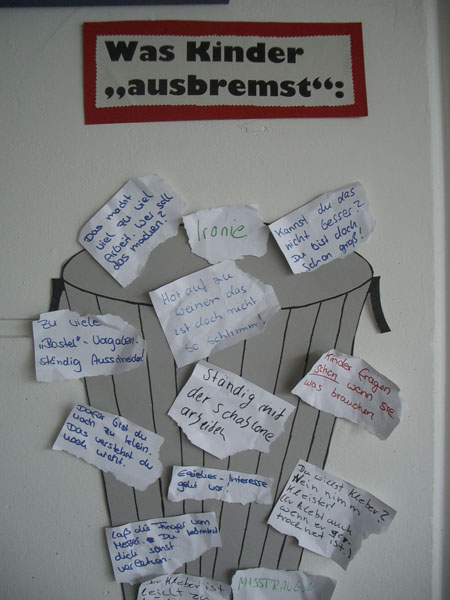 Was Kinder
„ausbremst“:
Das macht
viel zu viel
Arbeit, wer soll
das machen?
Ironie
Kannst du das
nicht besser?
Du bist doch
schon groß!
Hör auf zu
weinen das
ist doch nicht
so schlimm!
Zu viele
„Bastel“-Vorgaben.
Ständig Ausschneiden
Ständig mit
der Schablone
arbeiten
Kinder fragen
schon wenn sie
was brauchen
Dafür bist du
noch zu klein.
Das verstehst du
noch nicht.
Erzieher-Interesse
geht vor!
Du willst Kleber?
Nein nimm
Kleister!
Der klebt auch
wenn er
trocknet ist!
Laß die Finger vom
Messer. Du könntest
dich sonst
verletzen.
Kleber ist
leicht zu
MISSTRAUEN